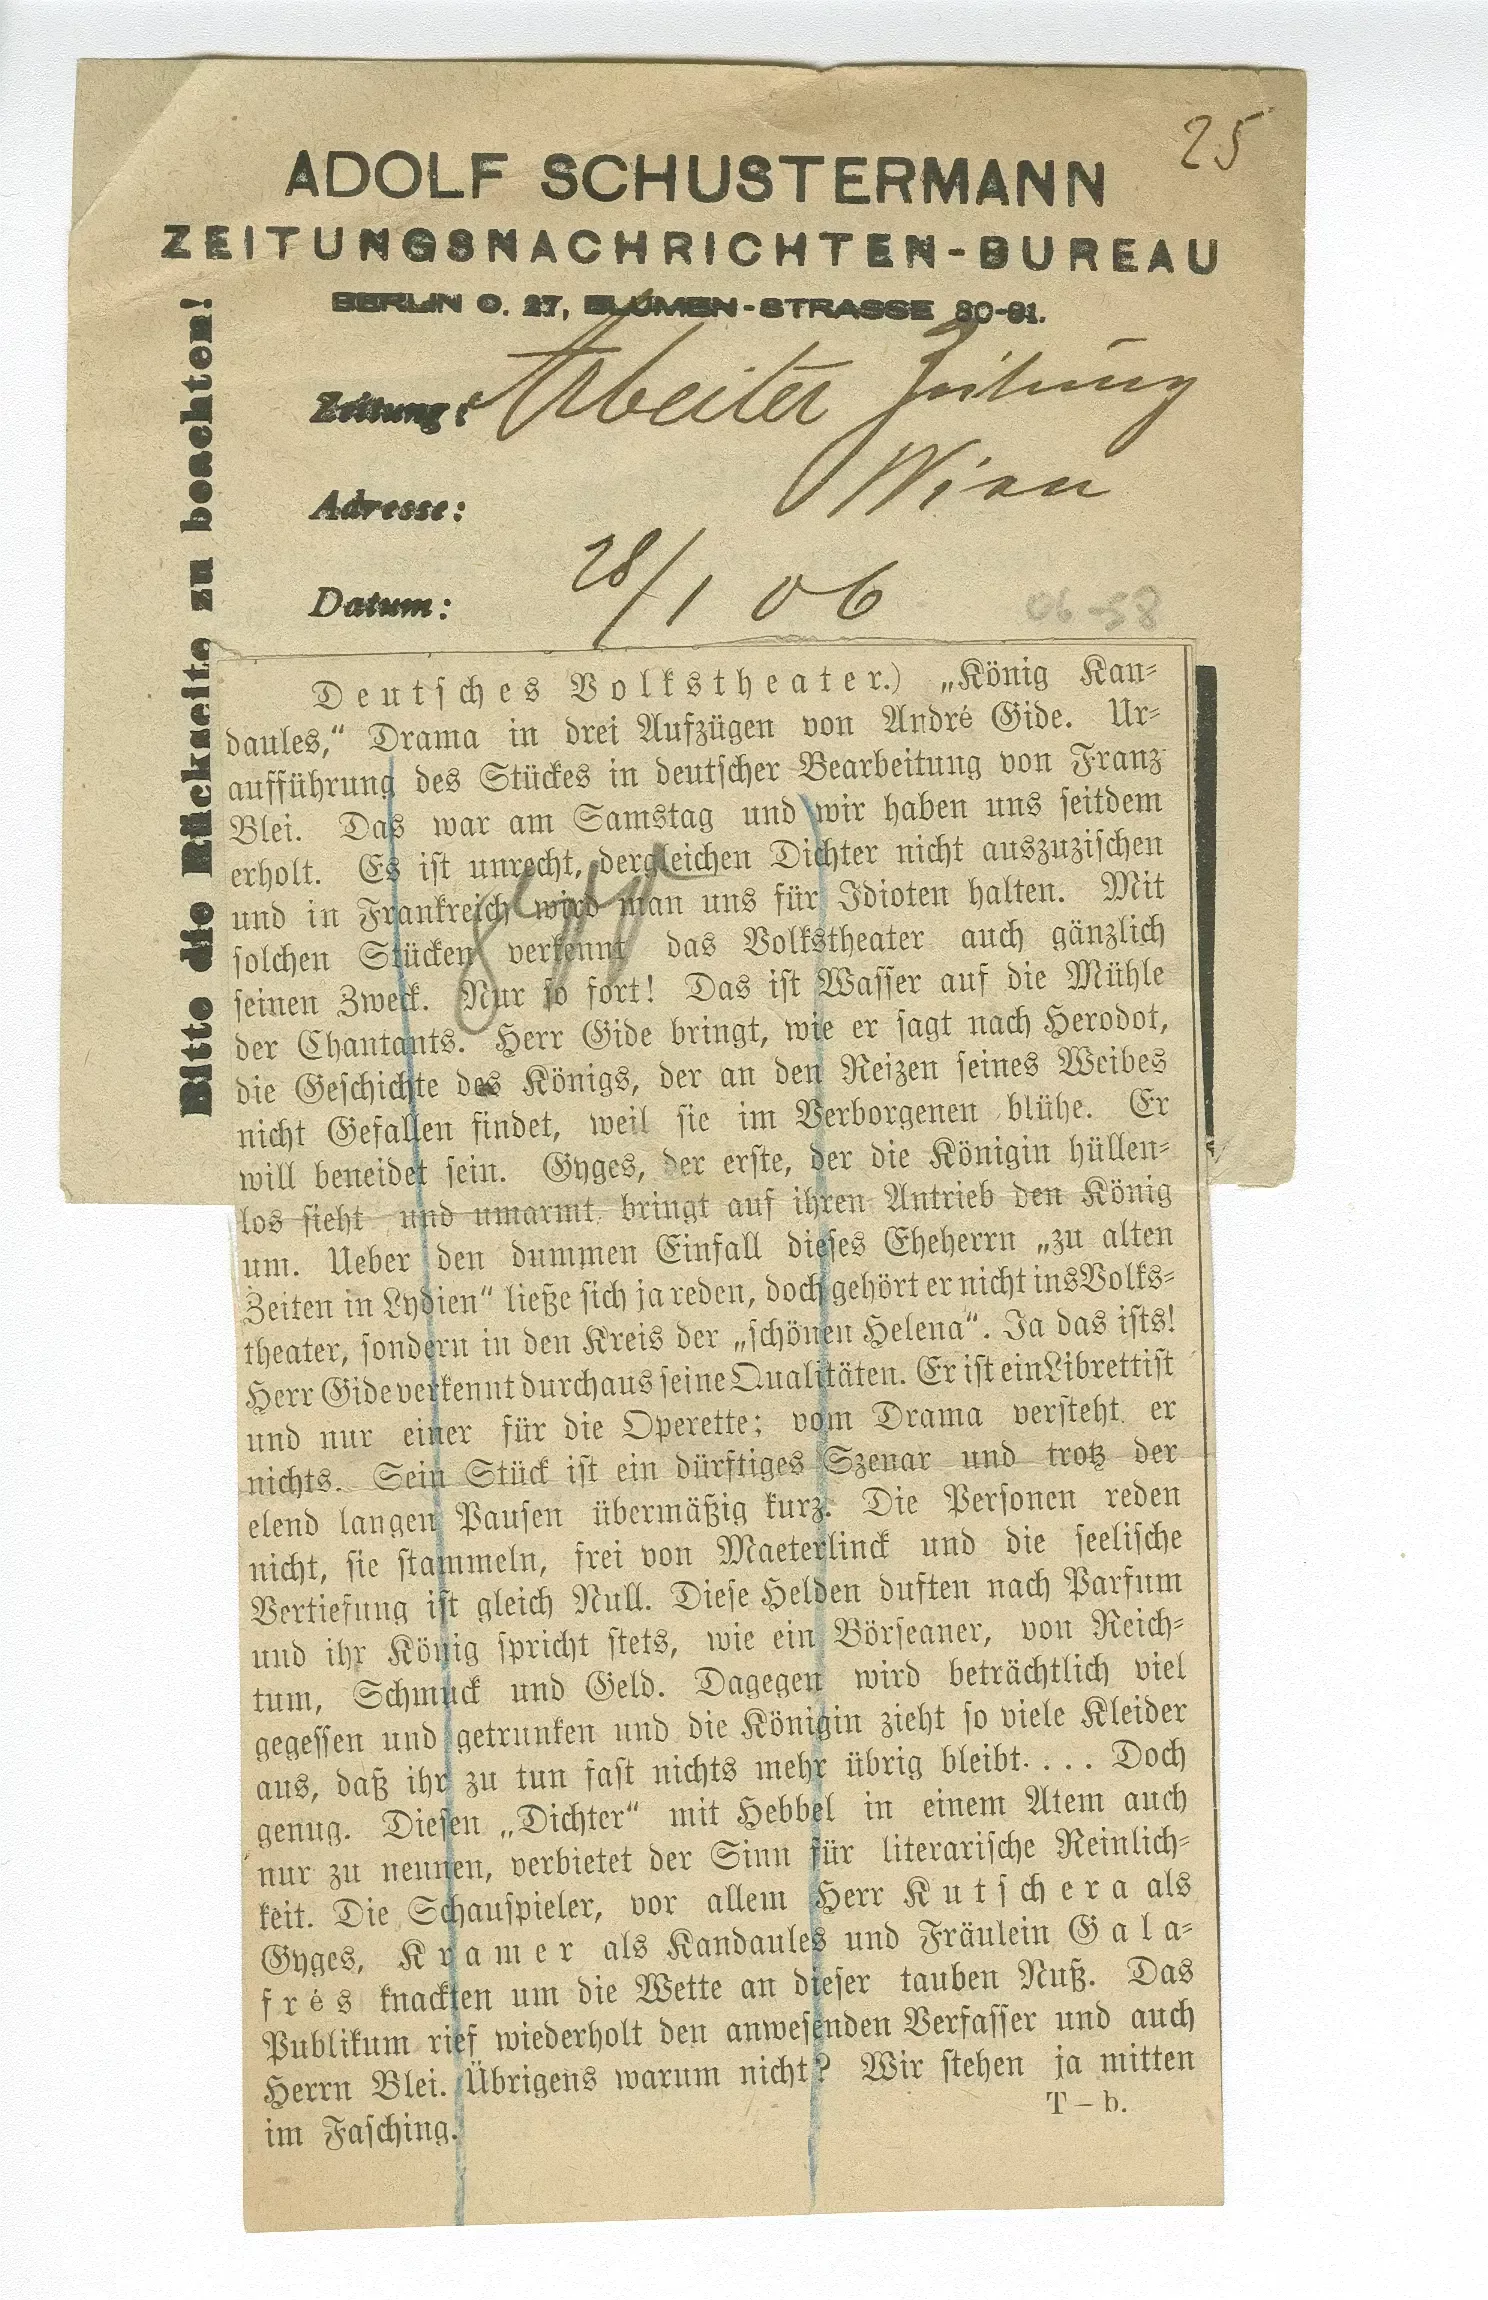 25
ADOLF SCHUSTERMANN
ZEITUNGSNACHRICHTEN-BUREAU
BERLIN O. 27, BLUMEN-STRASSE 80-81.
Zeitung: Arbeiter Zeitung
Adresse: Wien
Datum: 28/1 06
06-58
Bitte die Rückseite zu beachten!
Deutsches Volkstheater.) „König Kan-
daules,“ Drama in drei Aufzügen von André Gide. Ur-
aufführung des Stückes in deutscher Bearbeitung von Franz
Blei. Das war am Samstag und wir haben uns seitdem
erholt. Es ist unrecht, dergleichen Dichter nicht auszuzischen
und in Frankreich wird man uns für Idioten halten. Mit
solchen Stücken verkennt das Volkstheater auch gänzlich
seinen Zweck. Nur so fort! Das ist Wasser auf die Mühle
der Chantants. Herr Gide bringt, wie er sagt nach Herodot,
die Geschichte des Königs, der an den Reizen seines Weibes
nicht Gefallen findet, weil sie im Verborgenen blühe. Er
will beneidet sein. Gyges, der erste, der die Königin hüllen-
los sieht und umarmt, bringt auf ihren Antrieb den König
um. Ueber den dummen Einfall dieses Eheherrn „zu alten
Zeiten in Lydien“ ließe sich ja reden, doch gehört er nicht ins Volks-
theater, sondern in den Kreis der „schönen Helena“. Ja das ists!
Herr Gide verkennt durchaus seine Qualitäten. Er ist ein Librettist
und nur einer für die Operette; vom Drama versteht er
nichts. Sein Stück ist ein dürftiges Szenar und trotz der
elend langen Pausen übermäßig kurz. Die Personen reden
nicht, sie stammeln, frei von Maeterlinck und die seelische
Vertiefung ist gleich Null. Diese Helden duften nach Parfum
und ihr König spricht stets, wie ein Börseaner, von Reich-
tum, Schmuck und Geld. Dagegen wird beträchtlich viel
gegessen und getrunken und die Königin zieht so viele Kleider
aus, daß ihr zu tun fast nichts mehr übrig bleibt. . . . Doch
genug. Diesen „Dichter“ mit Hebbel in einem Atem auch
nur zu nennen, verbietet der Sinn für literarische Reinlich-
keit. Die Schauspieler, vor allem Herr Kutschera als
Gyges, Kramer als Kandaules und Fräulein Gala-
frés knackten um die Wette an dieser tauben Nuß. Das
Publikum rief wiederholt den anwesenden Verfasser und auch
Herrn Blei. Übrigens warum nicht? Wir stehen ja mitten
im Fasching.
T-b.